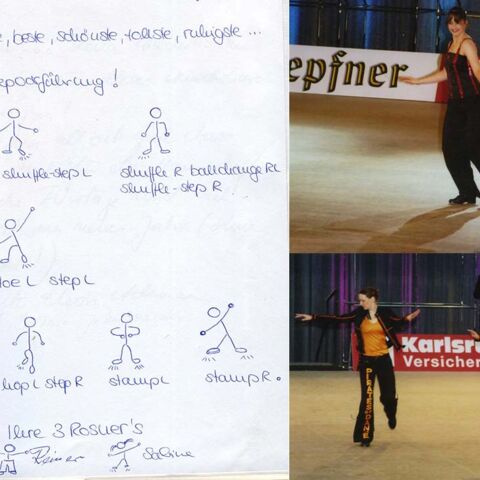 , beste, schönste, tollste, ruhigste ...
epackführung !
shuffle-step L
shuffle R ballchange RL
shuffle-step R
toe L step L
hop L step R
stamp L
stamp R.
Ihre 3 Rosner's
Reiner
Sabine
epfner
Karlsru
Versicher
PIRATES
DANE